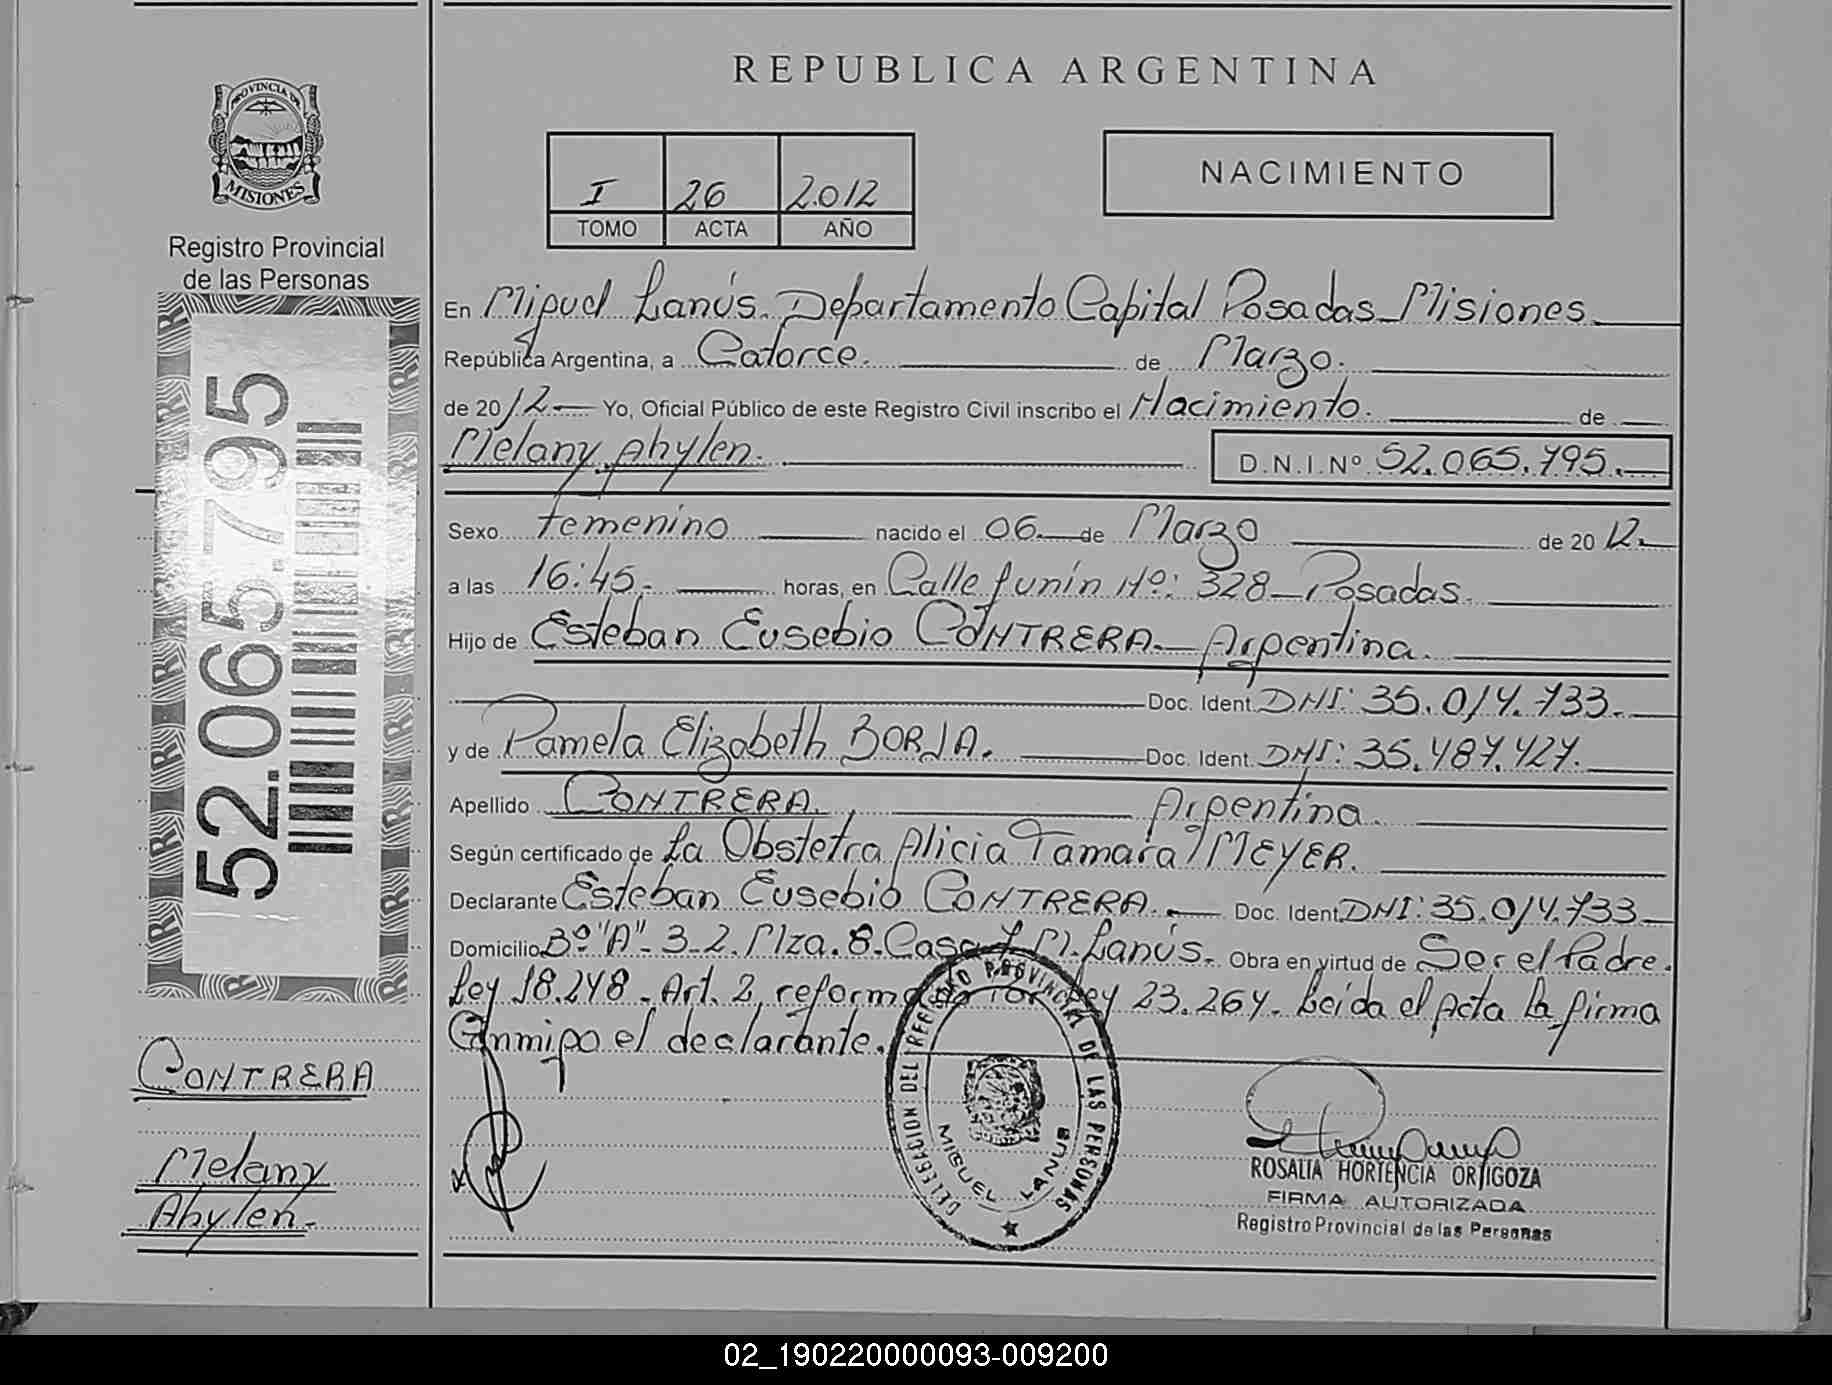 PROVINCIA DE
MISIONES
Registro Provincial
de las Personas
52.065.795
CONTRERA
Melany
Ahylen.-
REPUBLICA ARGENTINA
I 26 2.012
TOMO ACTA AÑO
NACIMIENTO
En Miguel Lanús. Departamento Capital Posadas Misiones
República Argentina, a Catorce. de Marzo.
de 2012 Yo, Oficial Público de este Registro Civil inscribo el Nacimiento. de
Melany Ahylen. D.N.I.Nº 52.065.795.
Sexo femenino nacido el 06 de Marzo de 2012.
a las 16:45.- horas, en Calle Junín Nº: 328 Posadas.
Hijo de Esteban Eusebio CONTRERA. Argentina.
Doc. Ident. DNI: 35.014.733.
y de Pamela Elizabeth BORJA. Doc. Ident. DNI: 35.487.427.
Apellido CONTRERA. Argentina.
Según certificado de La Obstetra Alicia Tamara MEYER.
Declarante Esteban Eusebio CONTRERA. Doc. Ident. DNI: 35.014.733
Domicilio Bº "A". 3-2. Mza. 8. Casa M. Lanús. Obra en virtud de Ser el Padre.
Ley 18.248. Art. 2, reformado Ley 23.264. Leida el Acta la firma
Conmigo el declarante.
DELEGACION DEL REGISTRO PROVINCIAL DE LAS PERSONAS
MIGUEL LANUS
ROSALIA HORTENCIA ORTIGOZA
FIRMA AUTORIZADA
Registro Provincial de las Personas
02_190220000093-009200